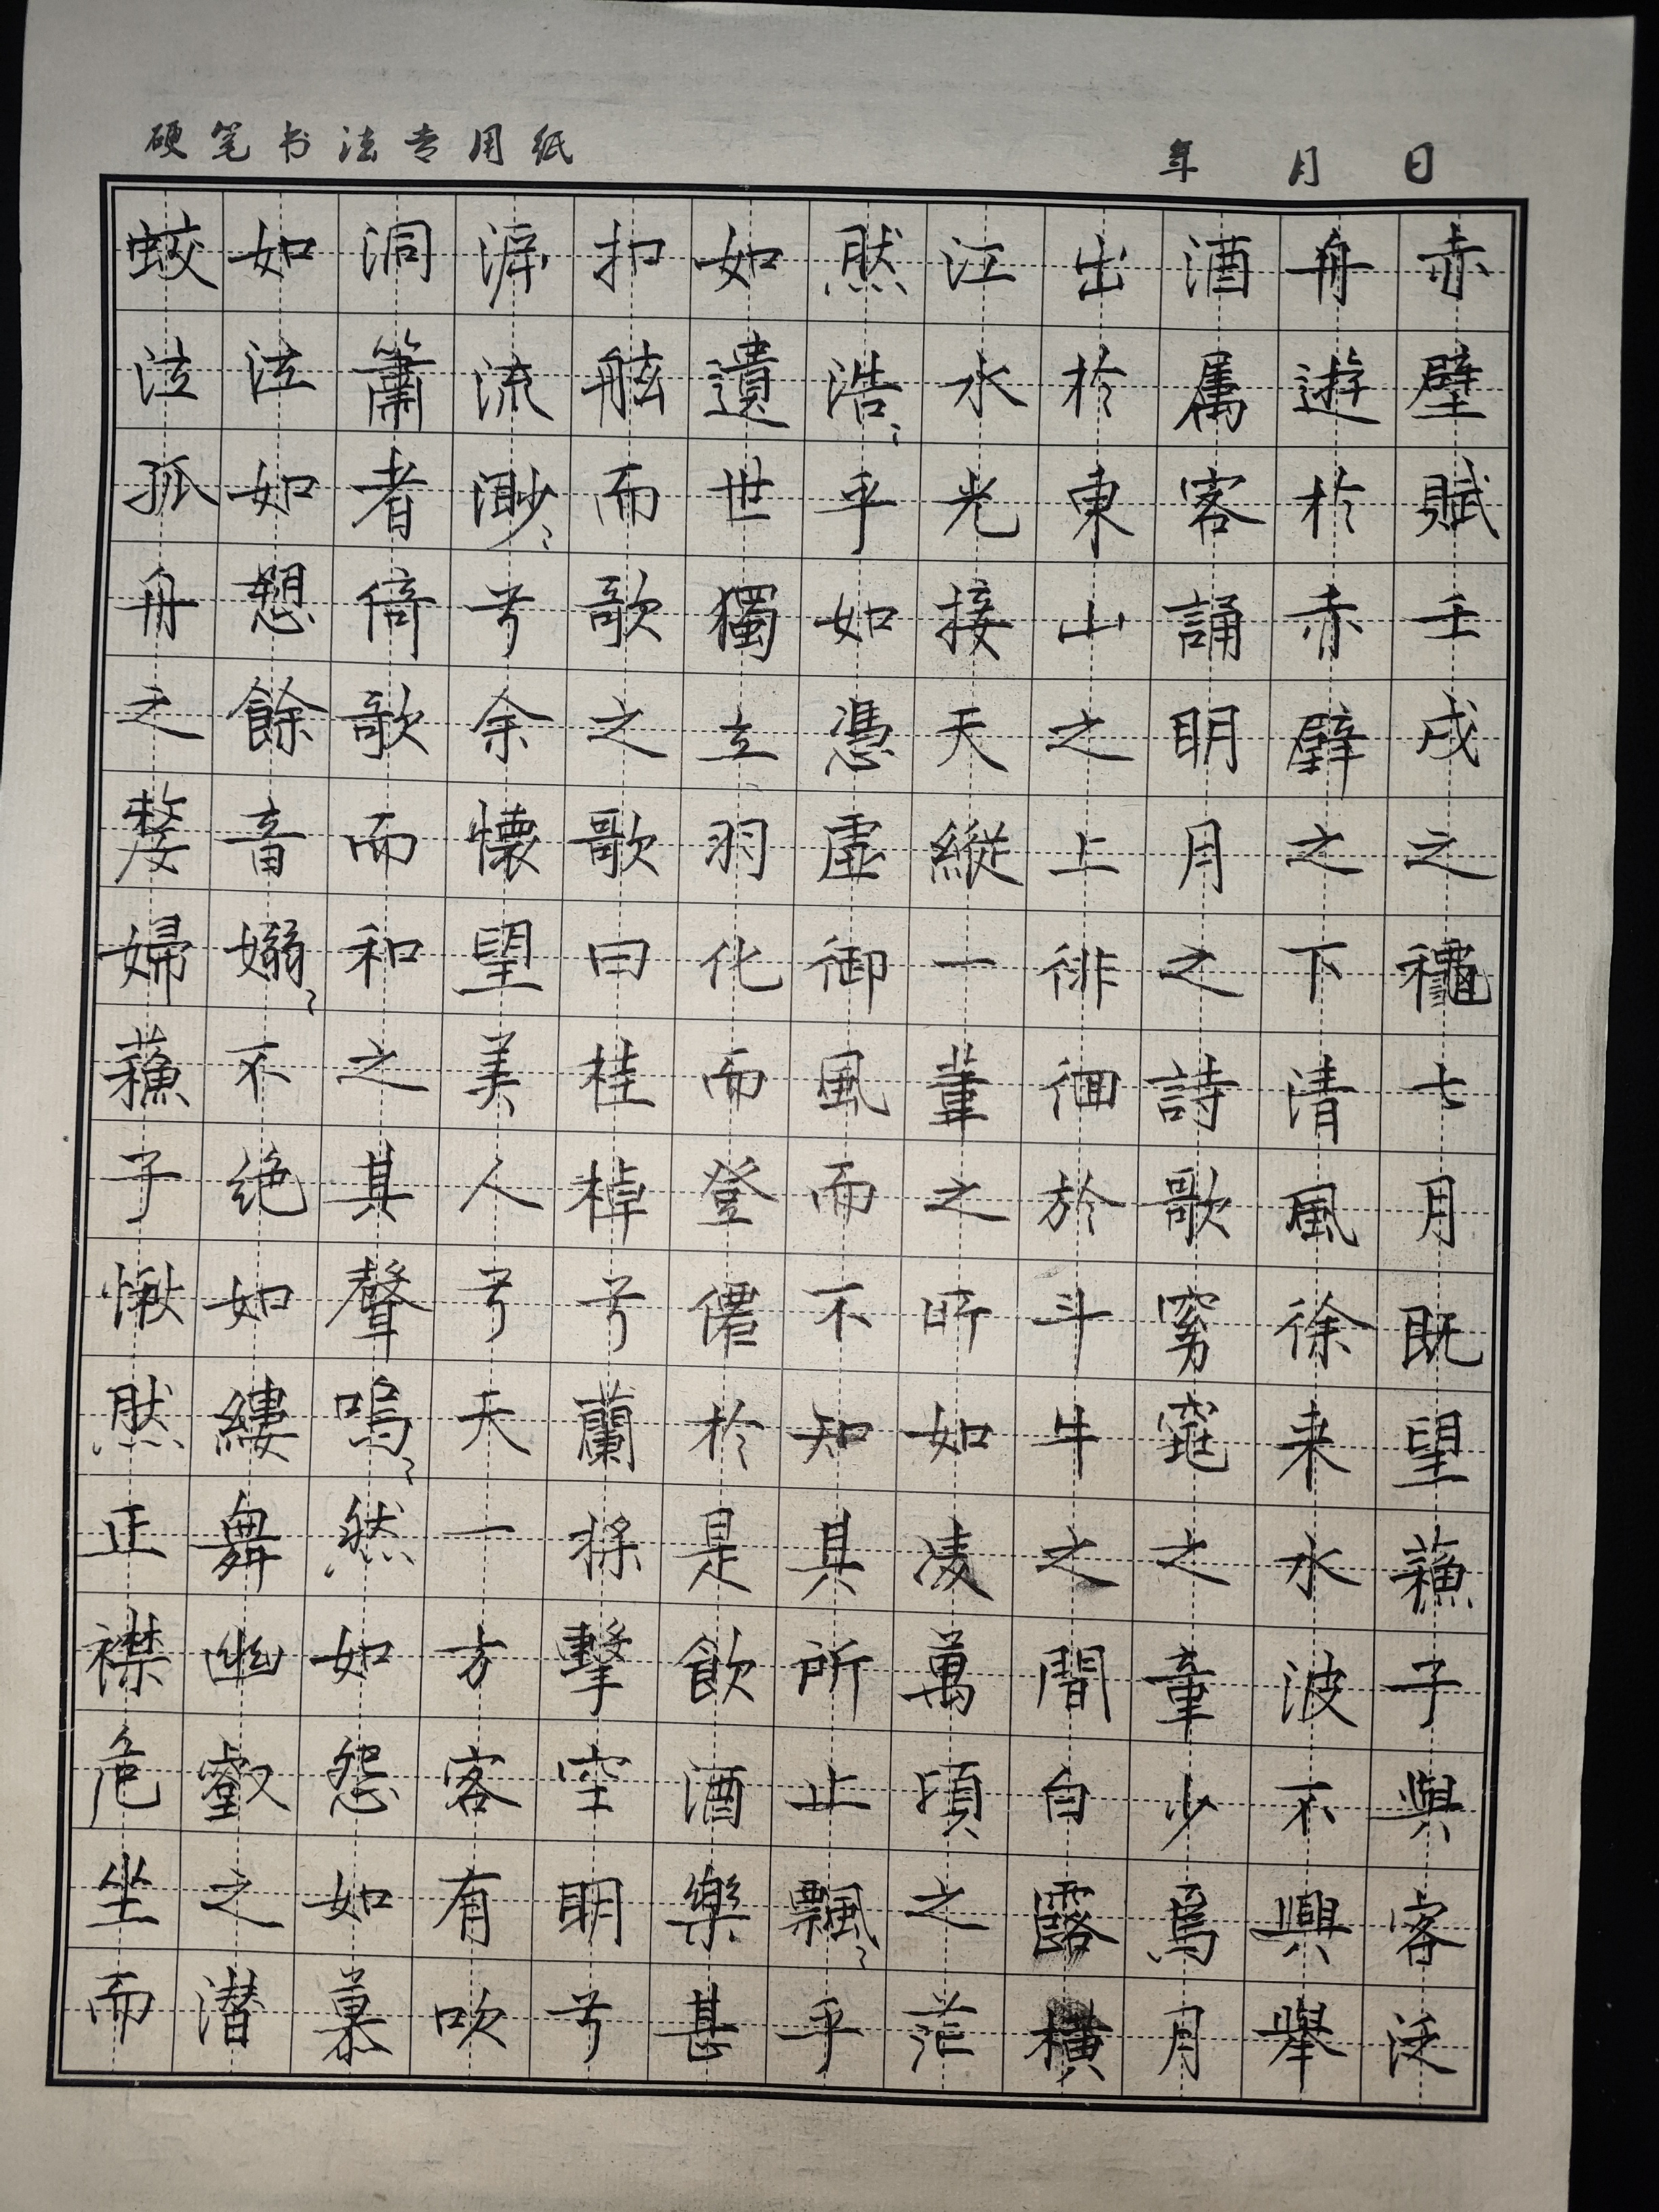 硬笔书法专用纸
年 月 日
赤壁賦壬戌之龝七月既望蘓子與客泛
舟遊於赤壁之下清風徐来水波不興舉
酒属客誦明月之詩歌窈窕之章少焉月
出於東山之上徘徊於斗牛之間白露橫
江水光接天縱一葦之所如凌萬頃之茫
然浩〻乎如憑虛御風而不知其所止飄〻乎
如遺世獨立羽化而登僊於是飲酒樂甚
扣舷而歌之歌曰桂棹兮蘭槳擊空明兮
泝流渺〻兮余懷望美人兮天一方客有吹
洞簫者倚歌而和之其聲嗚〻然如怨如慕
如泣如愬餘音嫋〻不绝如縷舞幽壑之潛
蛟泣孤舟之嫠婦蘓子愀然正襟危坐而